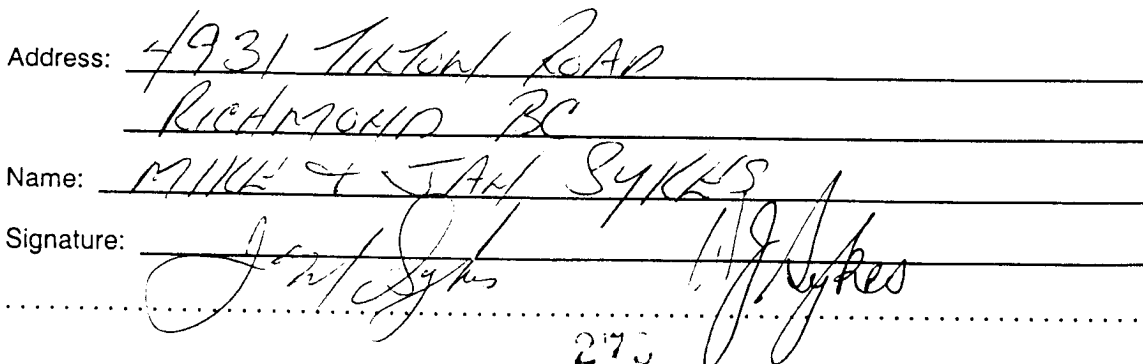 Address: 4931 TILTON ROAD
RICHMOND BC
Name: MIKE & JAN SYKES
Signature: Jan Sykes MJ Sykes